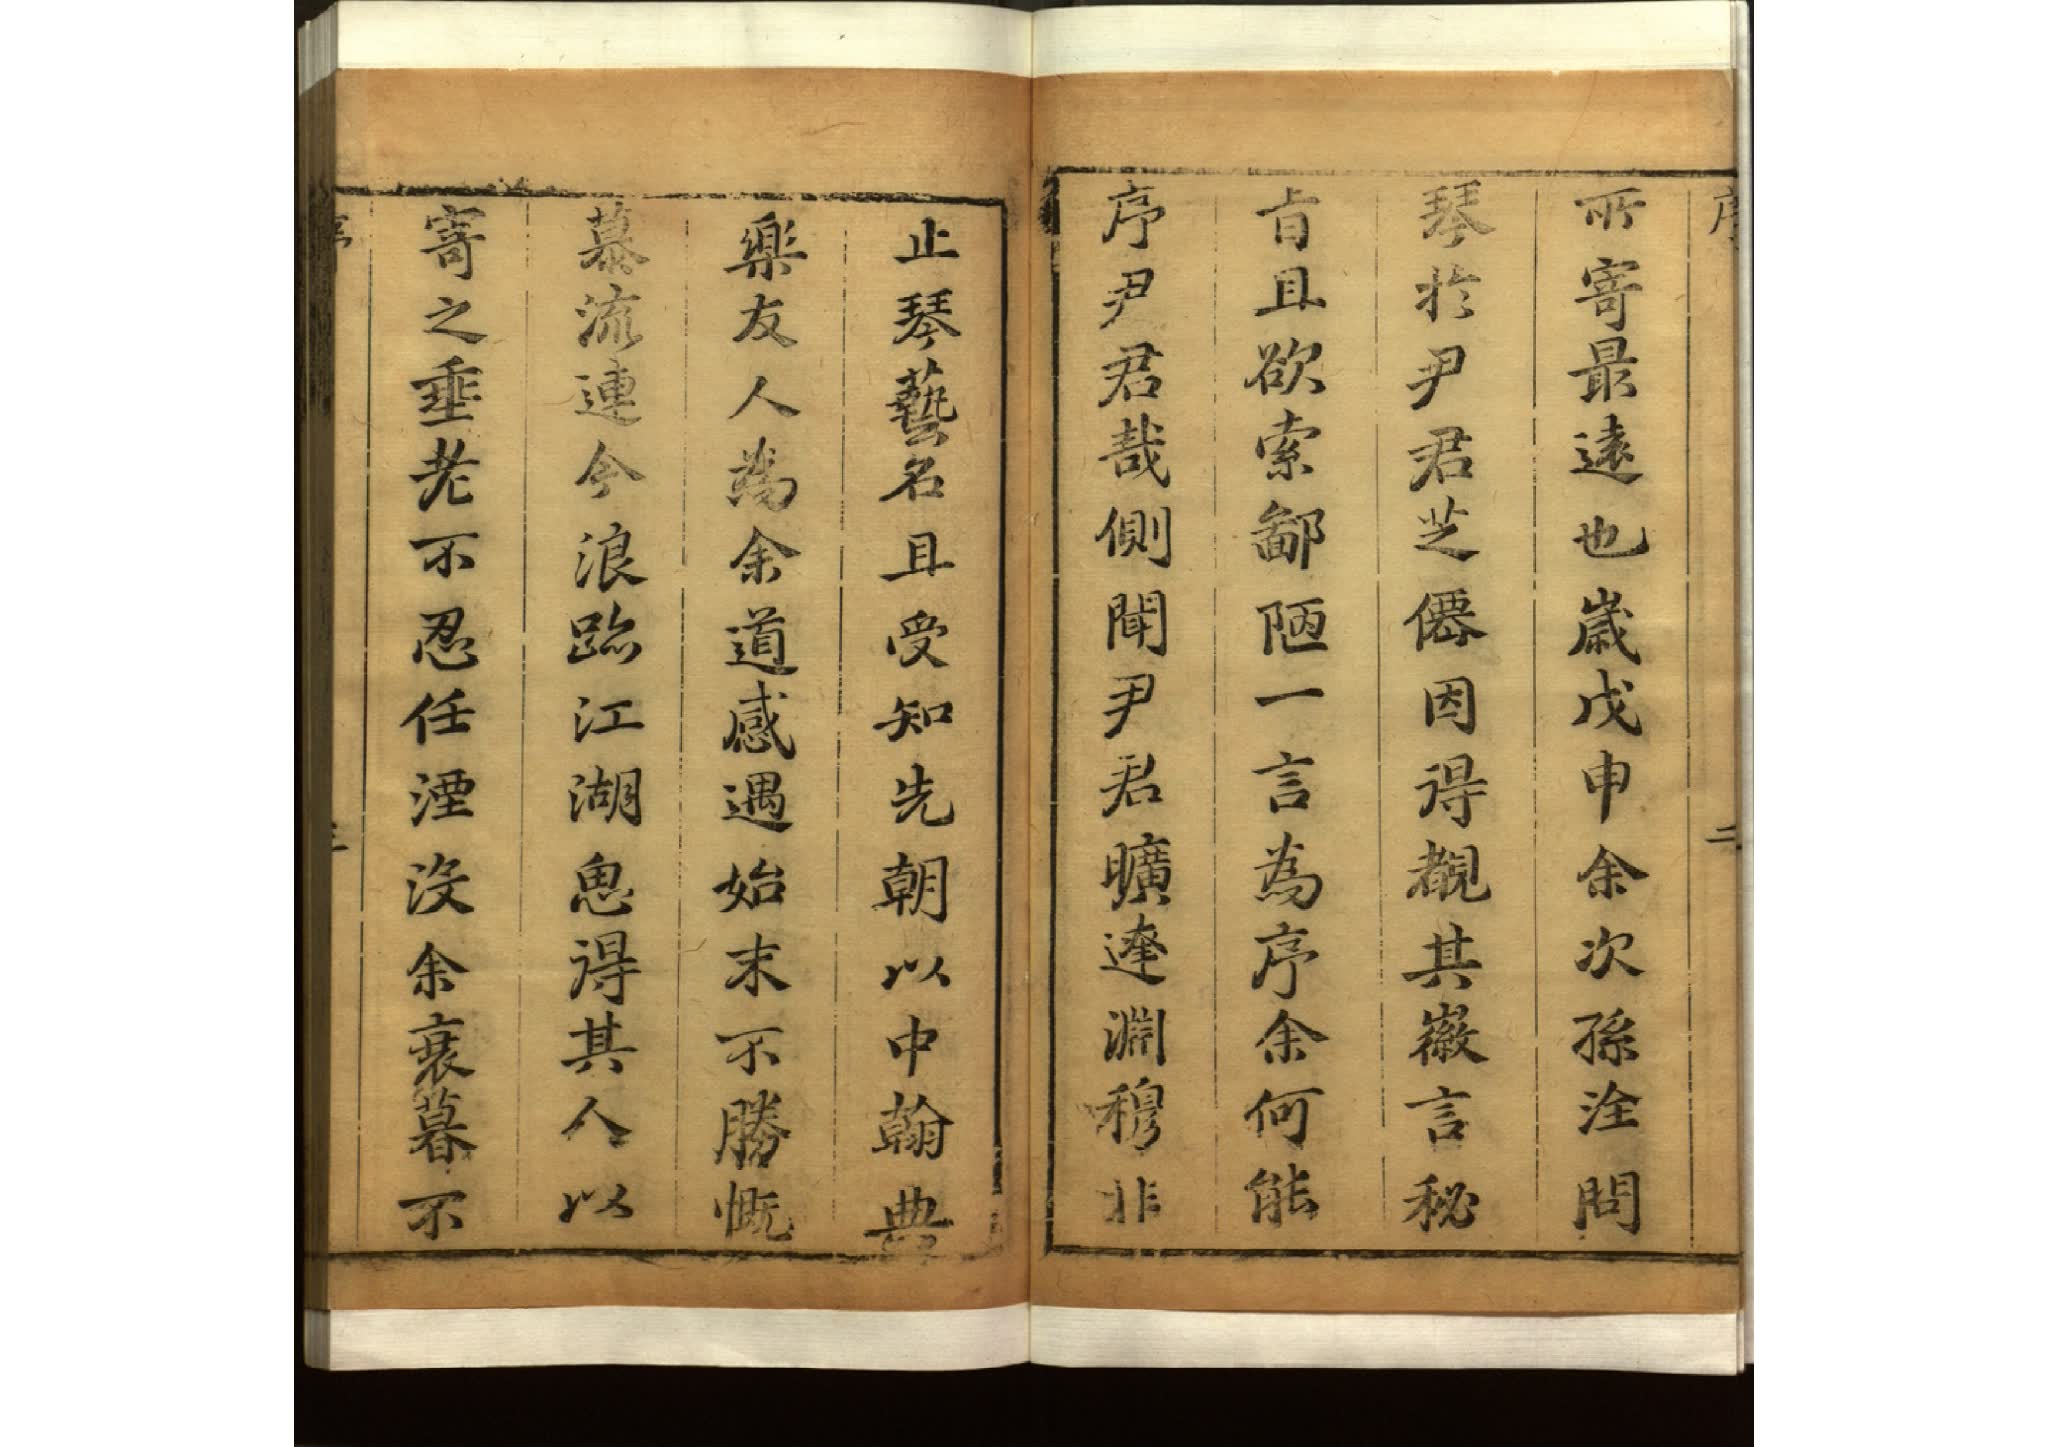 序
二
所寄最遠也歲戊申余次孫洤問
琴於尹君芝僊因得覩其徽言秘
旨且欲索鄙陋一言為序余何能
序尹君哉側聞尹君曠達淵穆非
止琴藝名且受知先朝以中翰典
樂友人為余道感遇始末不勝慨
慕流連今浪跡江湖思得其人以
寄之垂老不忍任湮沒余衰暮不
序
三